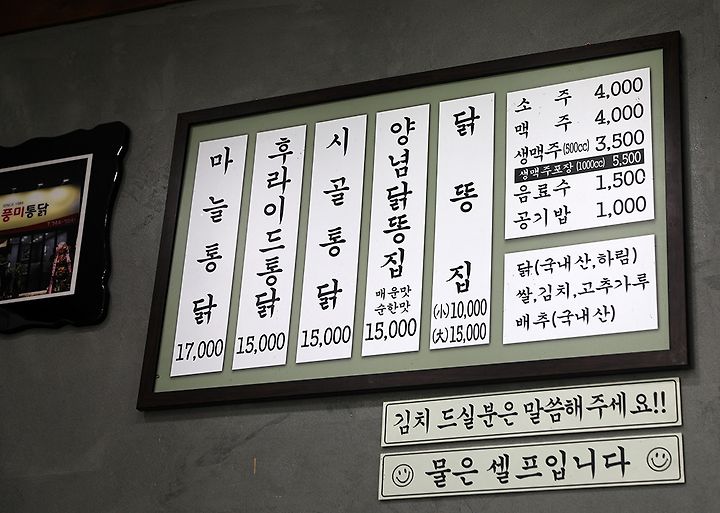 풍미통닭
마늘통닭
17,000
후라이드통닭
15,000
시골통닭
15,000
양념닭똥집
매운맛
순한맛
15,000
닭똥집
(小)10,000
(大)15,000
소주 4,000
맥주 4,000
생맥주(500cc) 3,500
생맥주포장(1000cc) 5,500
음료수 1,500
공기밥 1,000
닭(국내산,하림)
쌀,김치,고추가루
배추(국내산)
김치 드실분은 말씀해주세요!!
물은 셀프입니다